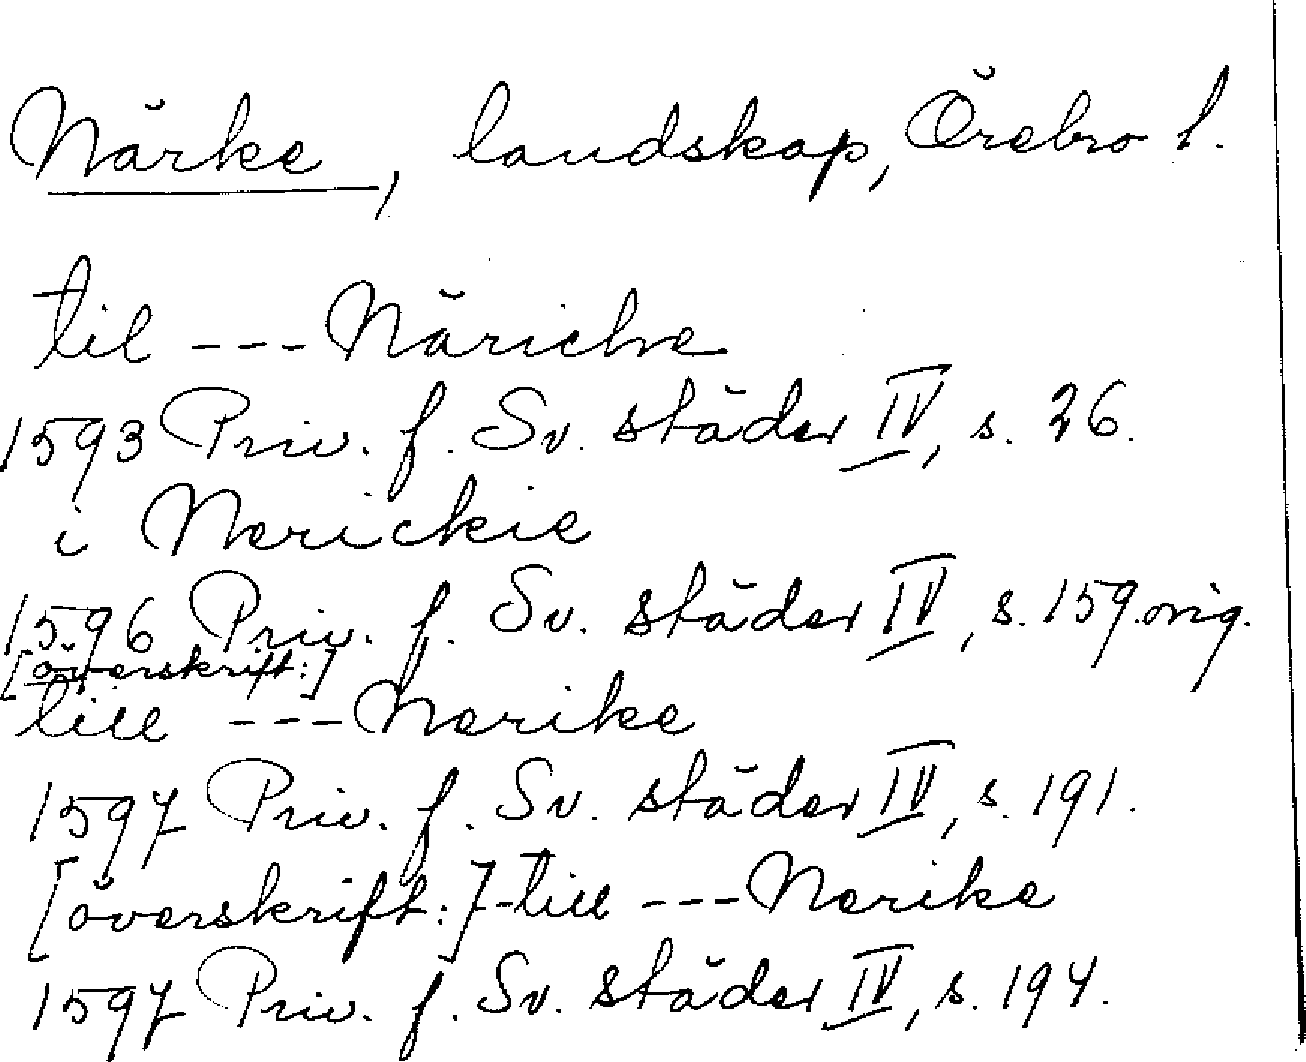 Närke, landskap, Örebro l.
til --- Näriche
1593 Priv. f. Sv. städer IV, s. 26.
i Nerickie
1596 Priv. f. Sv. städer IV, s. 159. orig.
[överskrift:]
till --- Nerike
1597 Priv. f. Sv. städer IV, s. 191.
[överskrift:] till --- Nerike
1597 Priv. f. Sv. städer IV, s. 194.